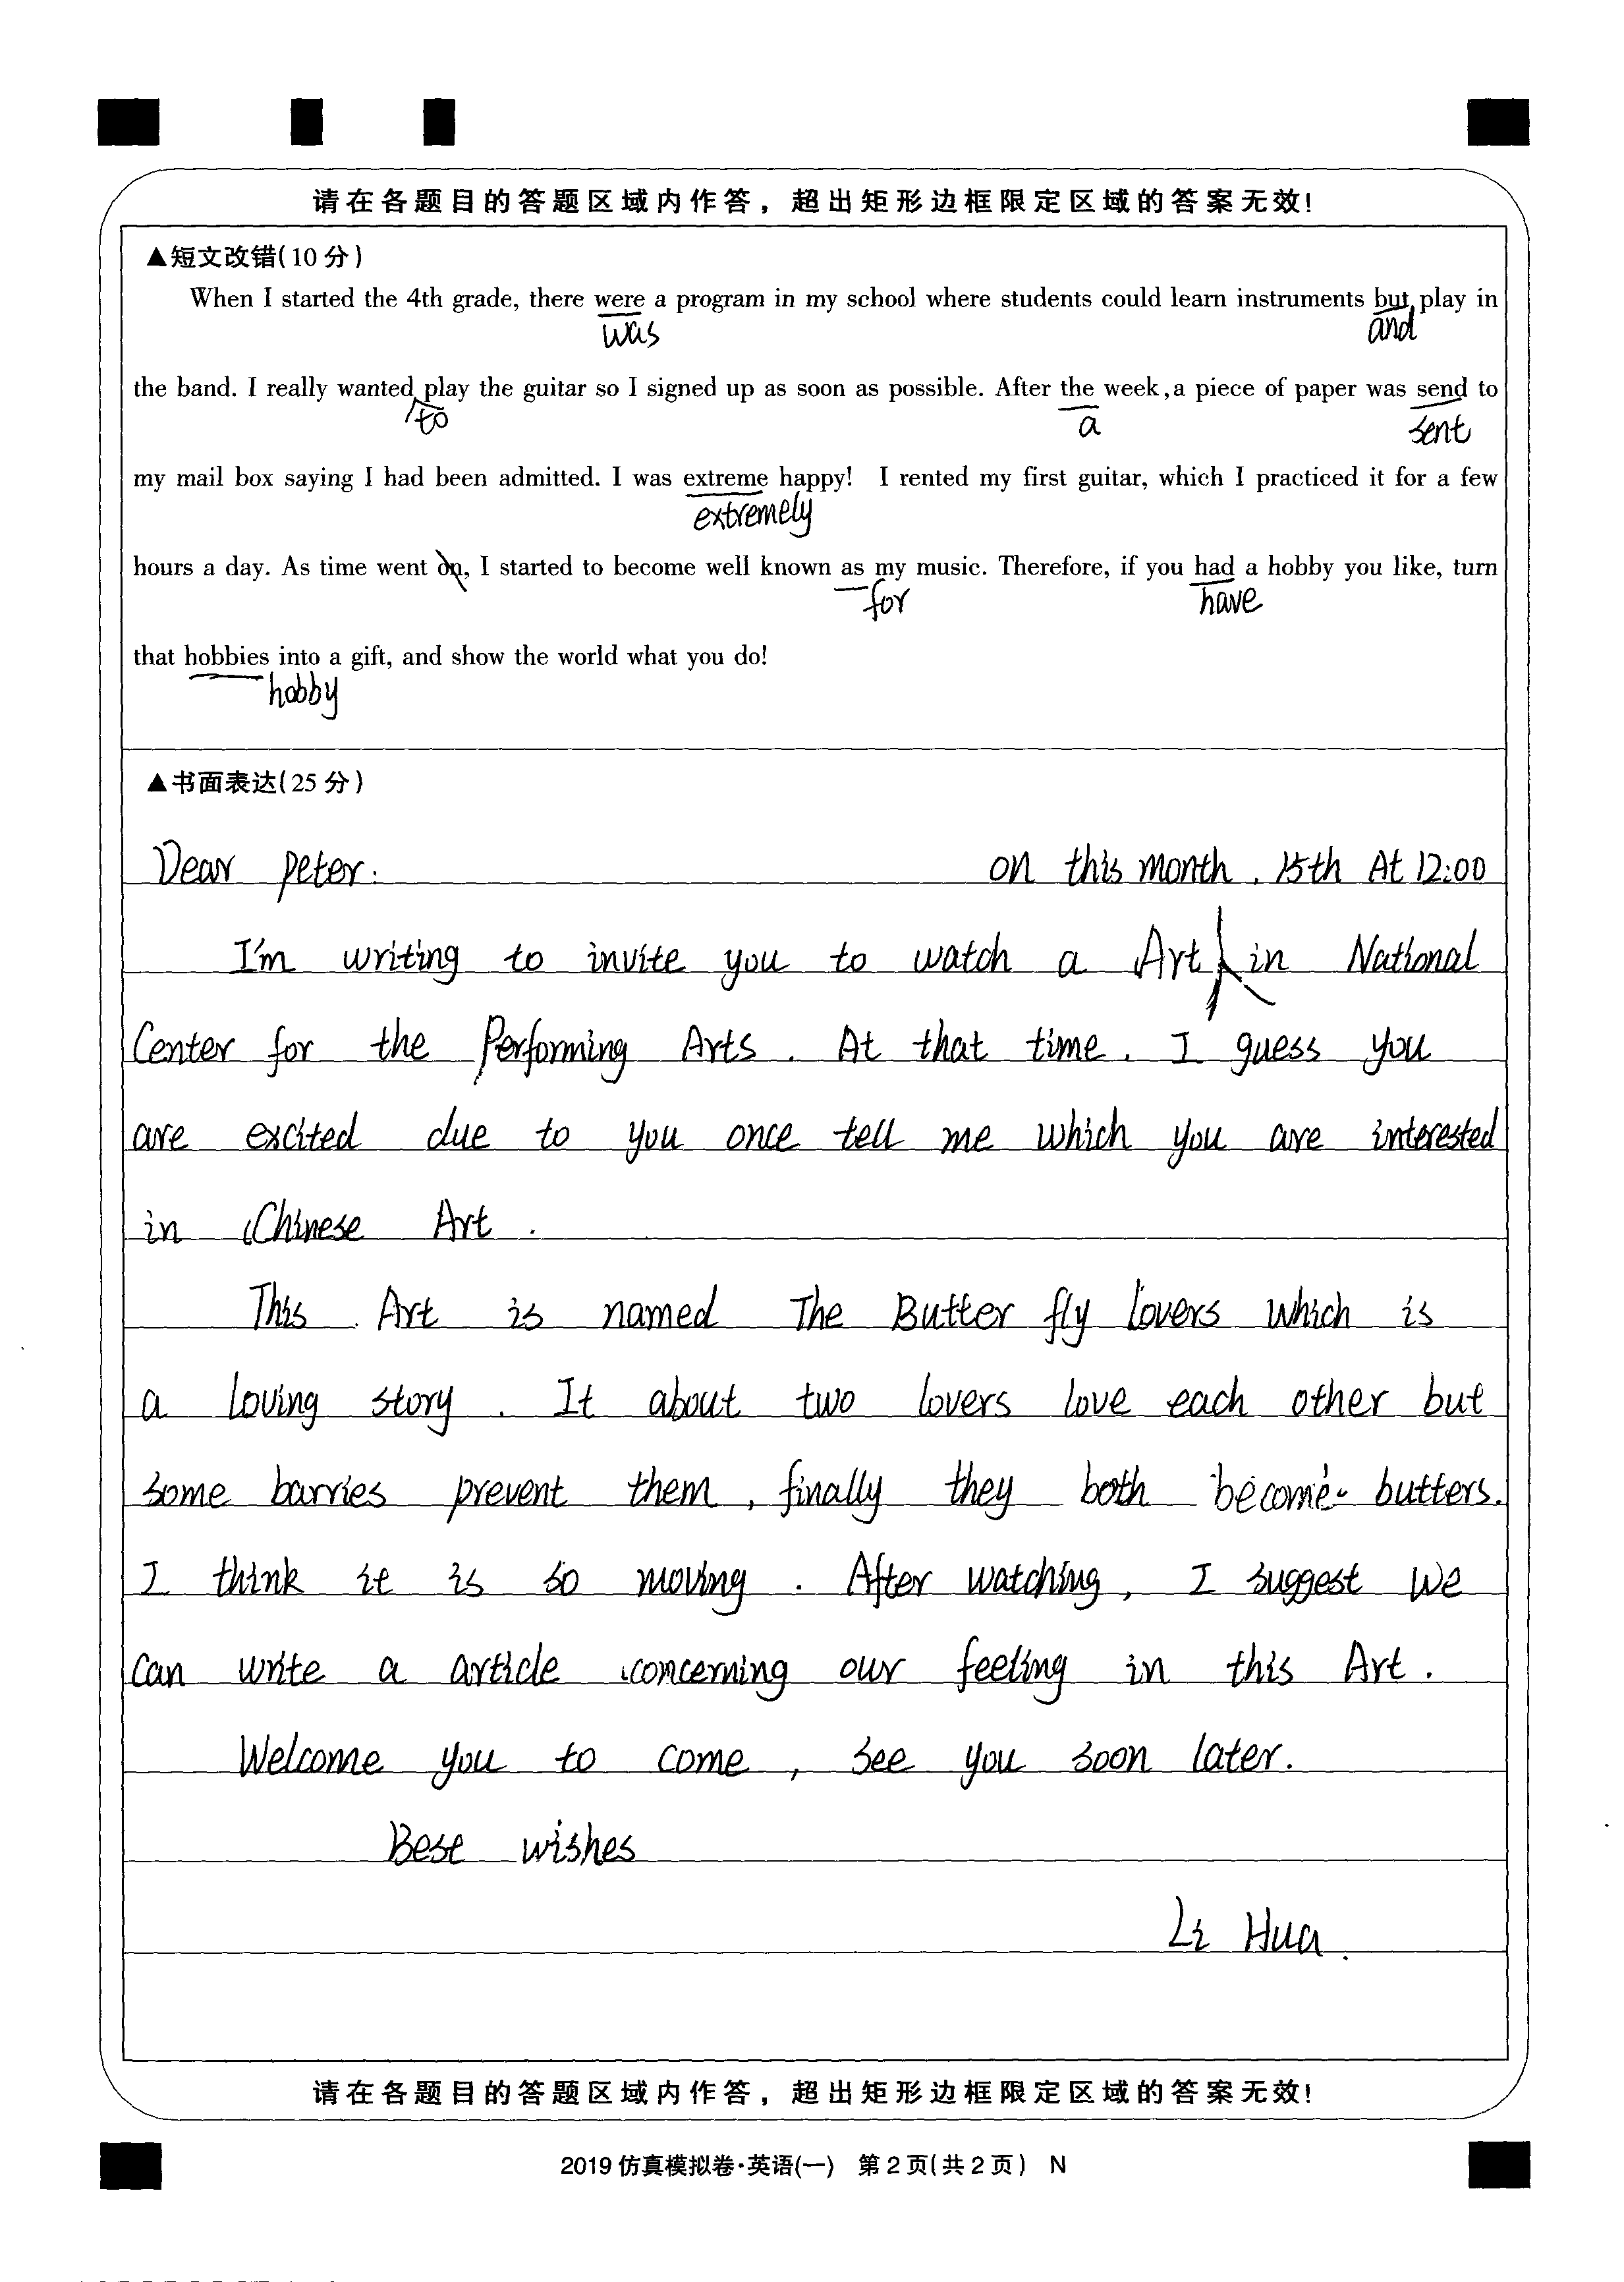 请在各题目的答题区域内作答，超出矩形边框限定区域的答案无效！
▲短文改错(10分)
When I started the 4th grade, there were a program in my school where students could learn instruments but play in
was and
the band. I really wanted play the guitar so I signed up as soon as possible. After the week, a piece of paper was send to
to a sent
my mail box saying I had been admitted. I was extreme happy! I rented my first guitar, which I practiced it for a few
extremely
hours a day. As time went on, I started to become well known as my music. Therefore, if you had a hobby you like, turn
for have
that hobbies into a gift, and show the world what you do!
hobby
▲书面表达(25分)
Dear peter: on this month. 15th At 12:00
I'm writing to invite you to watch a Art in National
Center for the Performing Arts. At that time. I guess you
are excited due to you once tell me which you are interested
in Chinese Art.
This Art is named The Butter fly lovers which is
a loving story. It about two lovers love each other but
some barries prevent them, finally they both become butters.
I think it is so moving. After watching, I suggest we
can write a article concerning our feeling in this Art.
Welcome you to come, see you soon later.
Best wishes
Li Hua.
请在各题目的答题区域内作答，超出矩形边框限定区域的答案无效！
2019仿真模拟卷·英语(一) 第2页(共2页) N